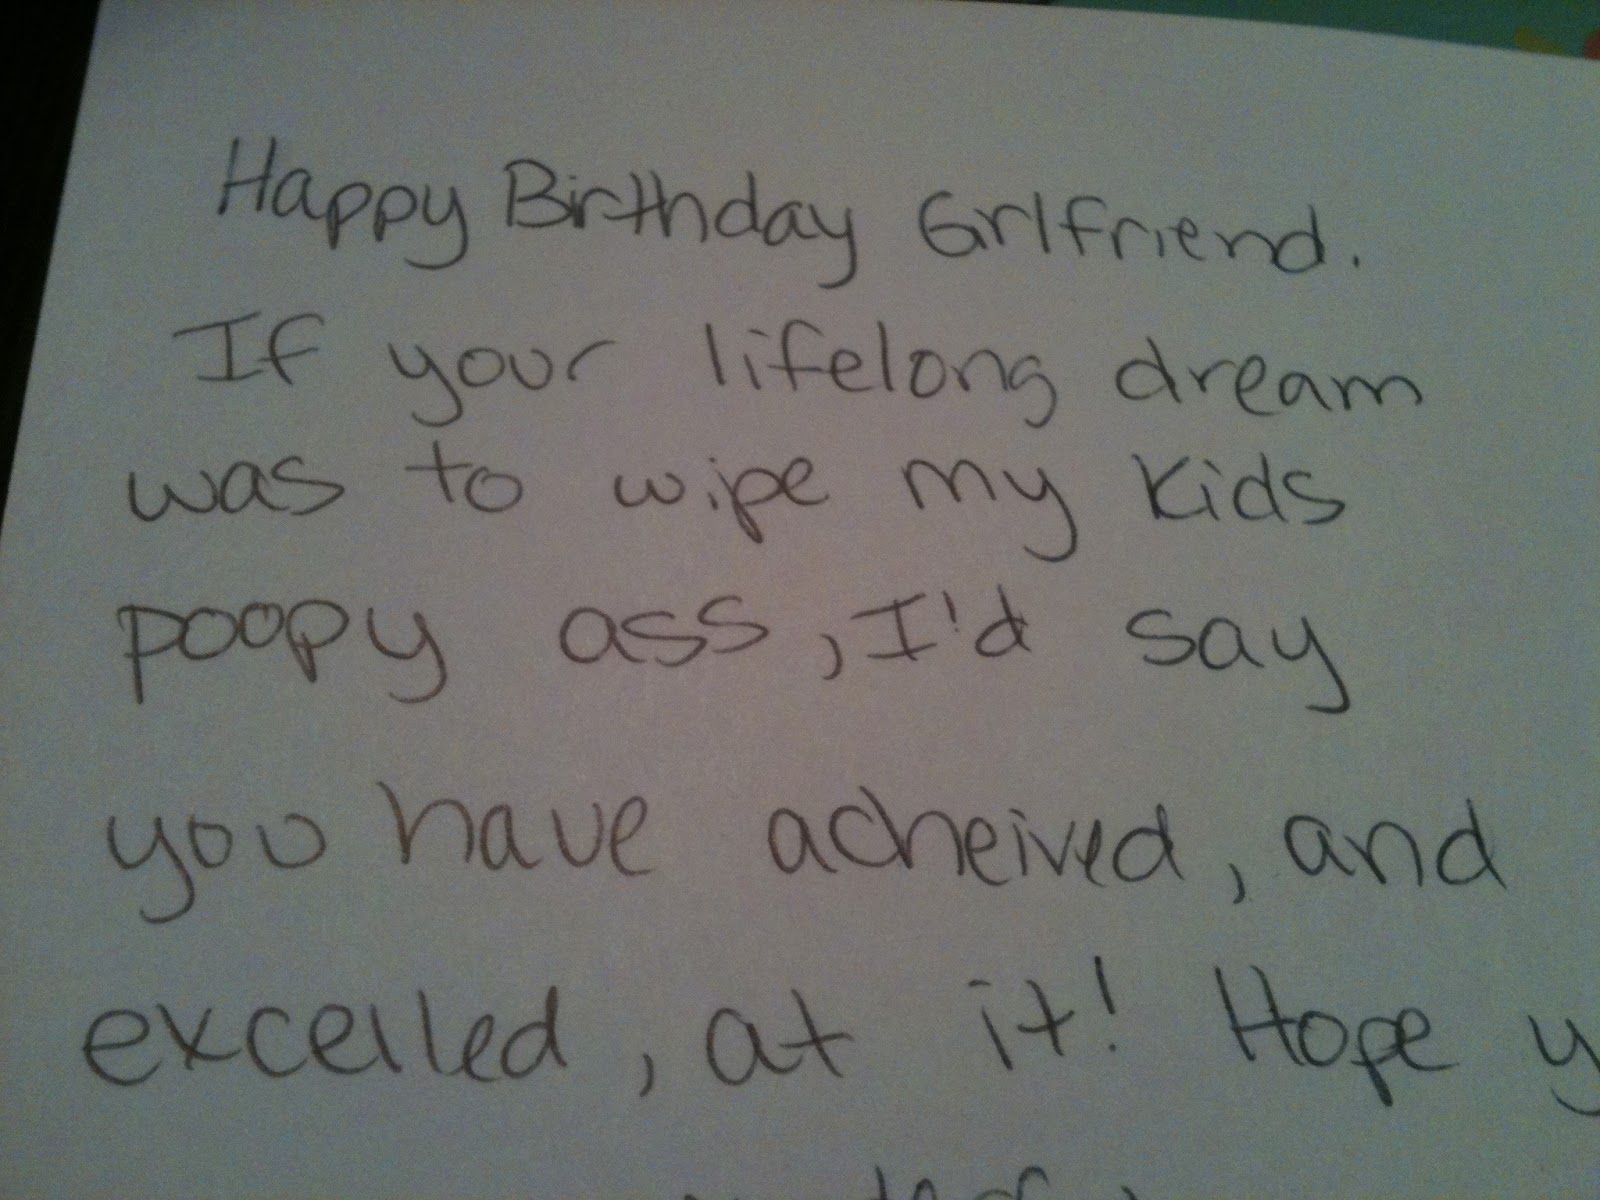 Happy Birthday Girlfriend.
If your lifelong dream
was to wipe my kids
poopy ass, I'd say
you have acheived, and
excelled, at it! Hope y